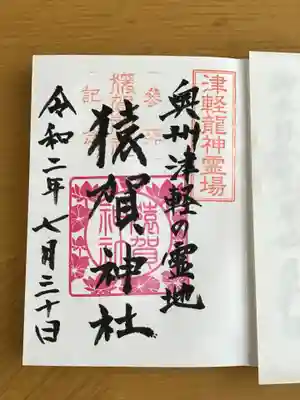 津軽龍神霊場
奥州津軽の霊地
猿賀神社
猿賀
神社
令和二年七月三十日